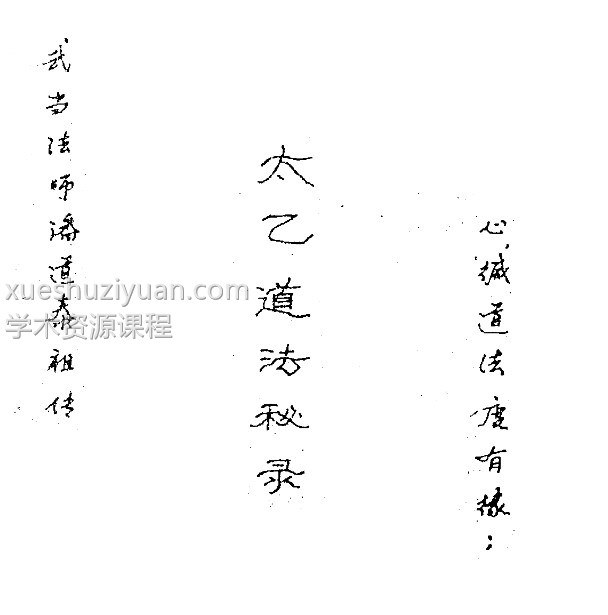 心缄道法度有缘；
太乙道法秘录
武当法师潘道泰祖传
xueshuziyuan.com
学术资源课程